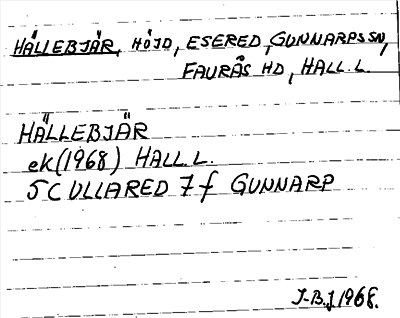 HÄLLEBJÄR, HÖJD, ESERED, GUNNARPSSN,
FAURÅS HD, HALL.L.
HÄLLEBJÄR
ek(1968) HALL.L.
5C ULLARED 7f GUNNARP
J-B.J 1968.